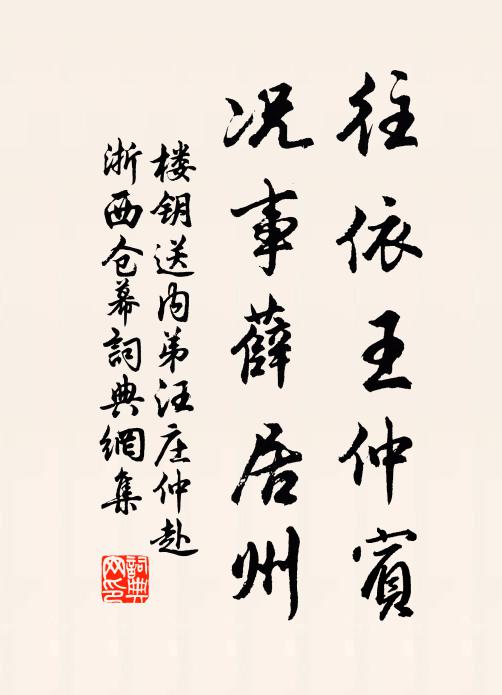 往依王仲賓
况事薛居州
楼钥送内弟汪庄仲赴
浙西仓幕詞典網集
詞典网印